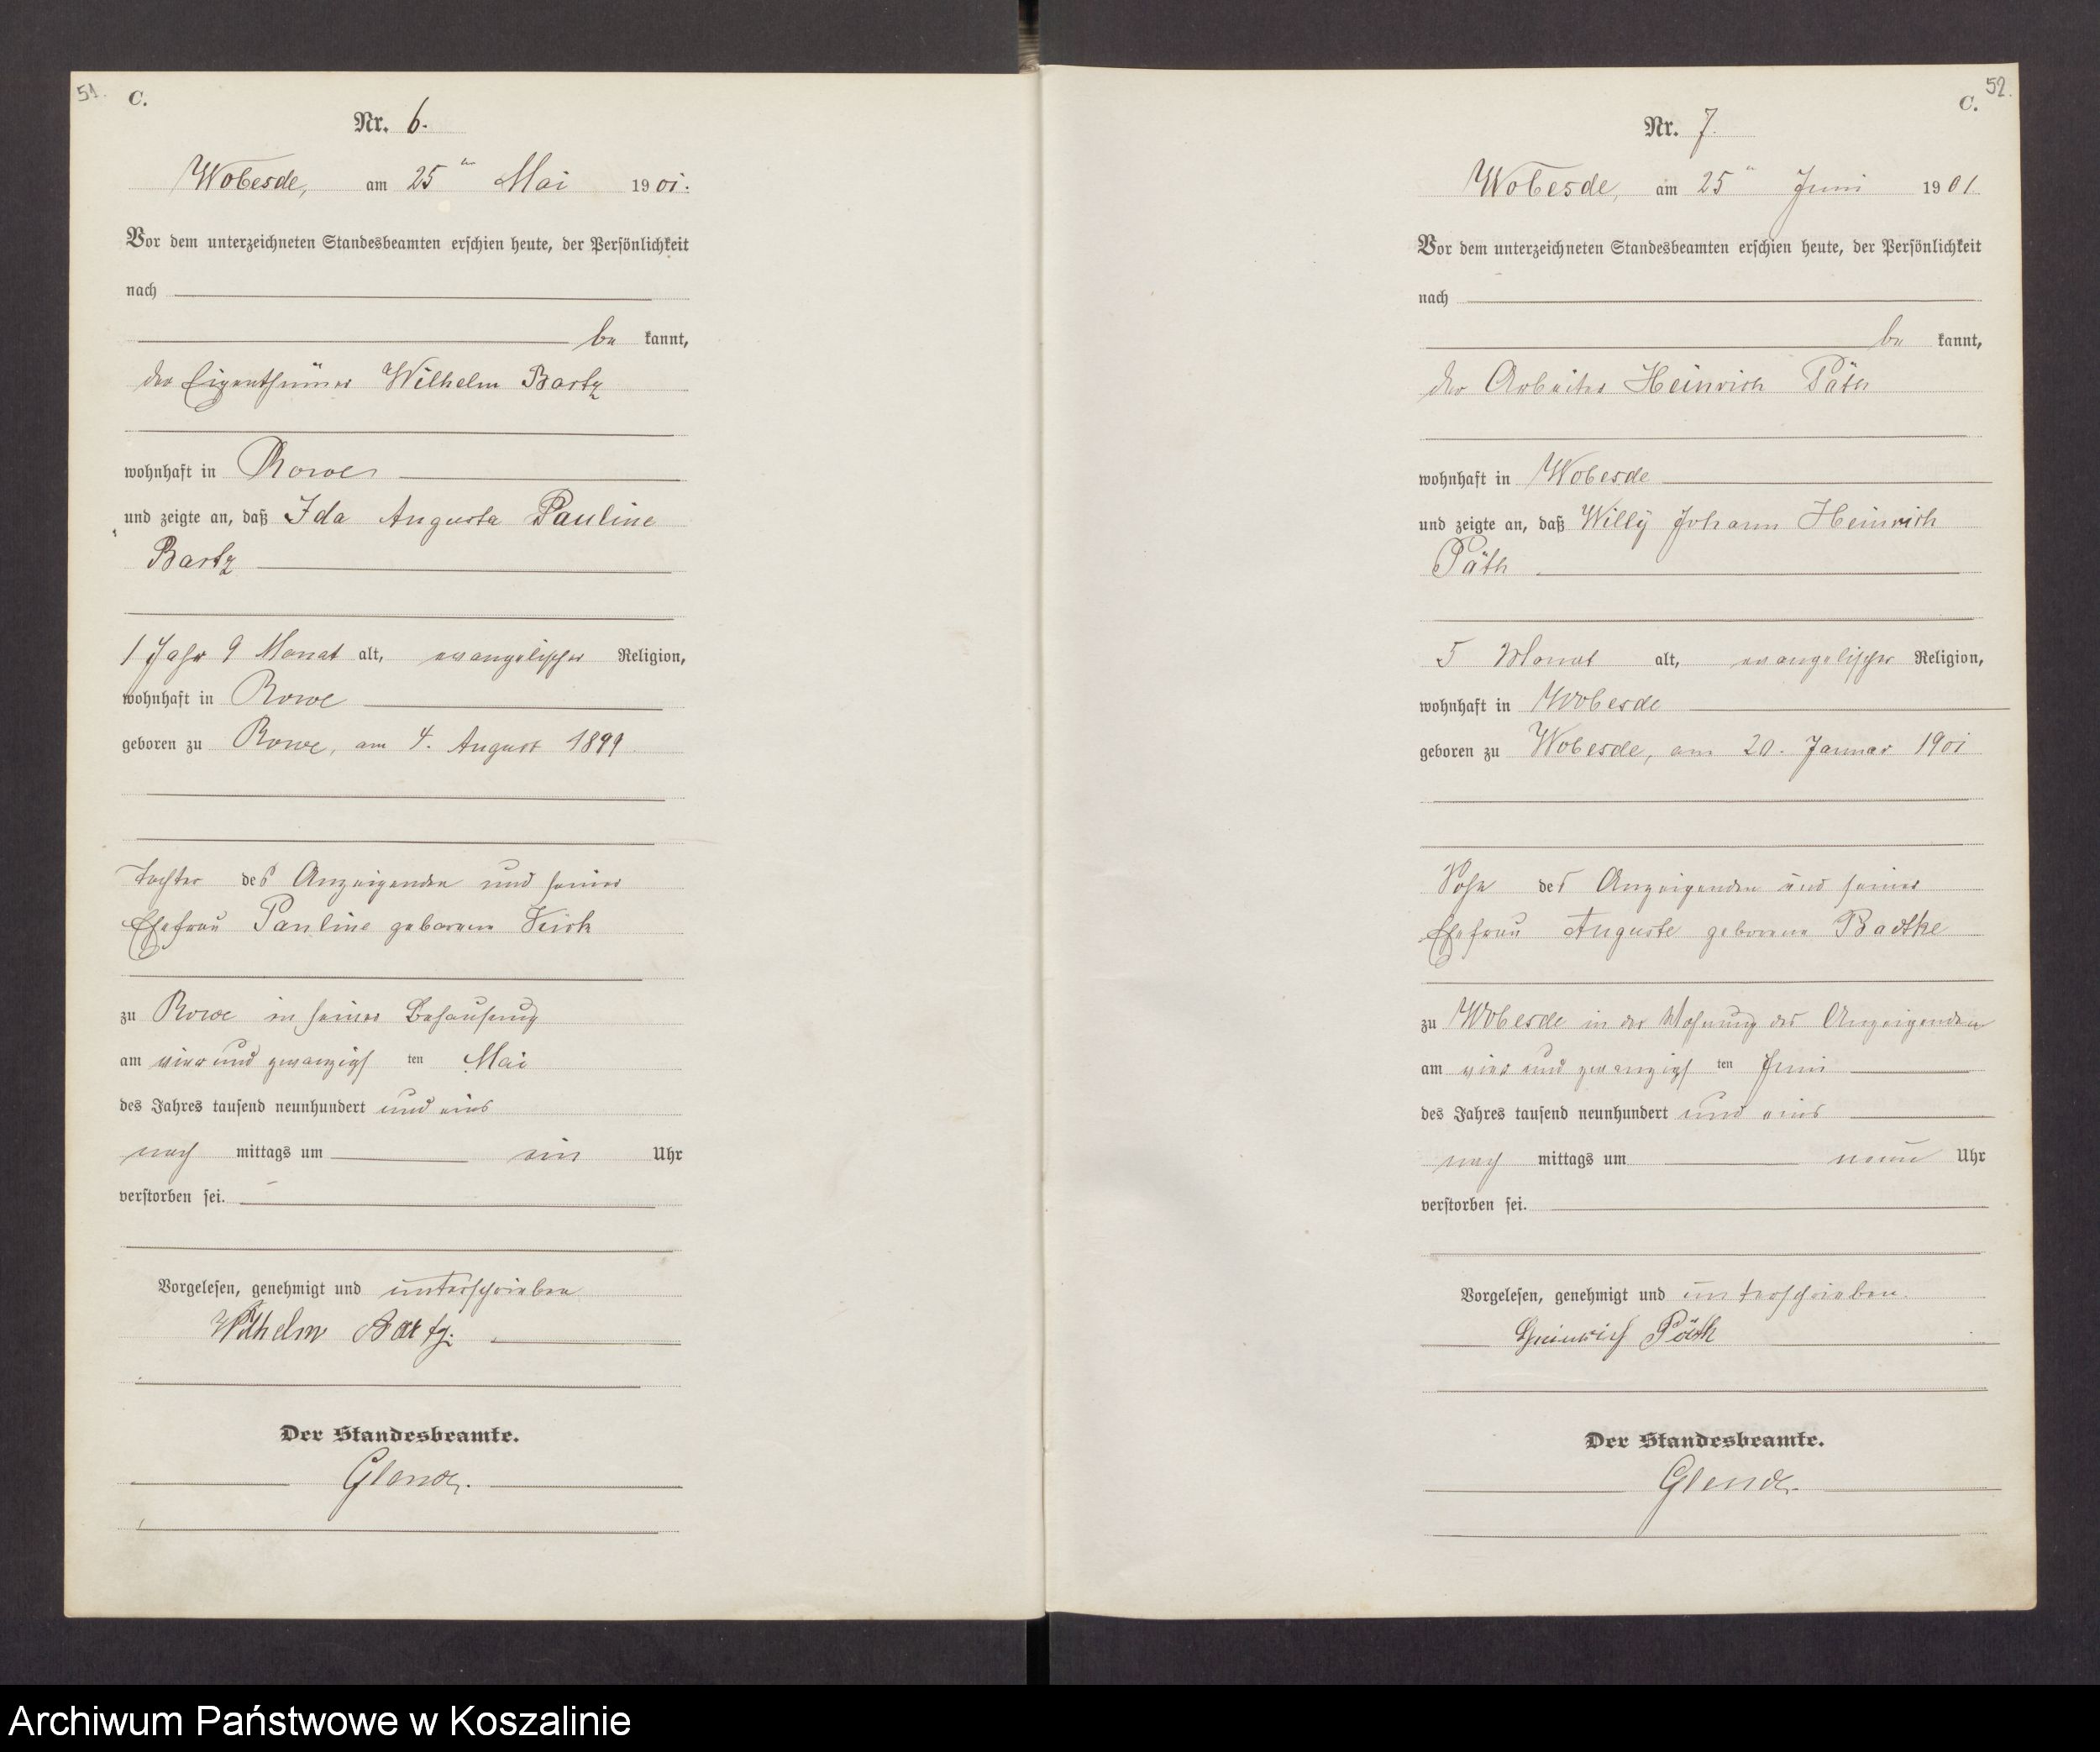 51.
C.
Nr. 6.
Wobesde, am 25ten Mai 1901.
Vor dem unterzeichneten Standesbeamten erschien heute, der Persönlichkeit
nach
be kannt,
der Eigenthümer Wilhelm Bartz
wohnhaft in Rowe
und zeigte an, daß Ida Auguste Pauline
Bartz
1 Jahr 9 Monat alt, evangelischer Religion,
wohnhaft in Rowe
geboren zu Rowe, am 4. August 1899
Tochter des Anzeigenden und seiner
Ehefrau Pauline geborenen
zu Rowe in seiner Behausung
am vier und zwanzigsten Mai
des Jahres tausend neunhundert und eins
nach mittags um ein Uhr
verstorben sei.
Vorgelesen, genehmigt und unterschrieben
Wilhelm Bartz.
Der Standesbeamte.
Glende.
52.
C.
Nr. 7.
Wobesde, am 25ten Juni 1901
Vor dem unterzeichneten Standesbeamten erschien heute, der Persönlichkeit
nach
be kannt,
der Arbeiter Heinrich Päth
wohnhaft in Wobesde
und zeigte an, daß Willy Johann Heinrich
Päth
5 Monat alt, evangelischer Religion,
wohnhaft in Wobesde
geboren zu Wobesde, am 20. Januar 1901
Sohn des Anzeigenden und seiner
Ehefrau Auguste geborene Badtke
zu Wobesde in der Wohnung des Anzeigenden
am vier und zwanzigsten Juni
des Jahres tausend neunhundert und eins
nach mittags um neun Uhr
verstorben sei.
Vorgelesen, genehmigt und unterschrieben.
Heinrich Päth
Der Standesbeamte.
Glende.
Archiwum Państwowe w Koszalinie